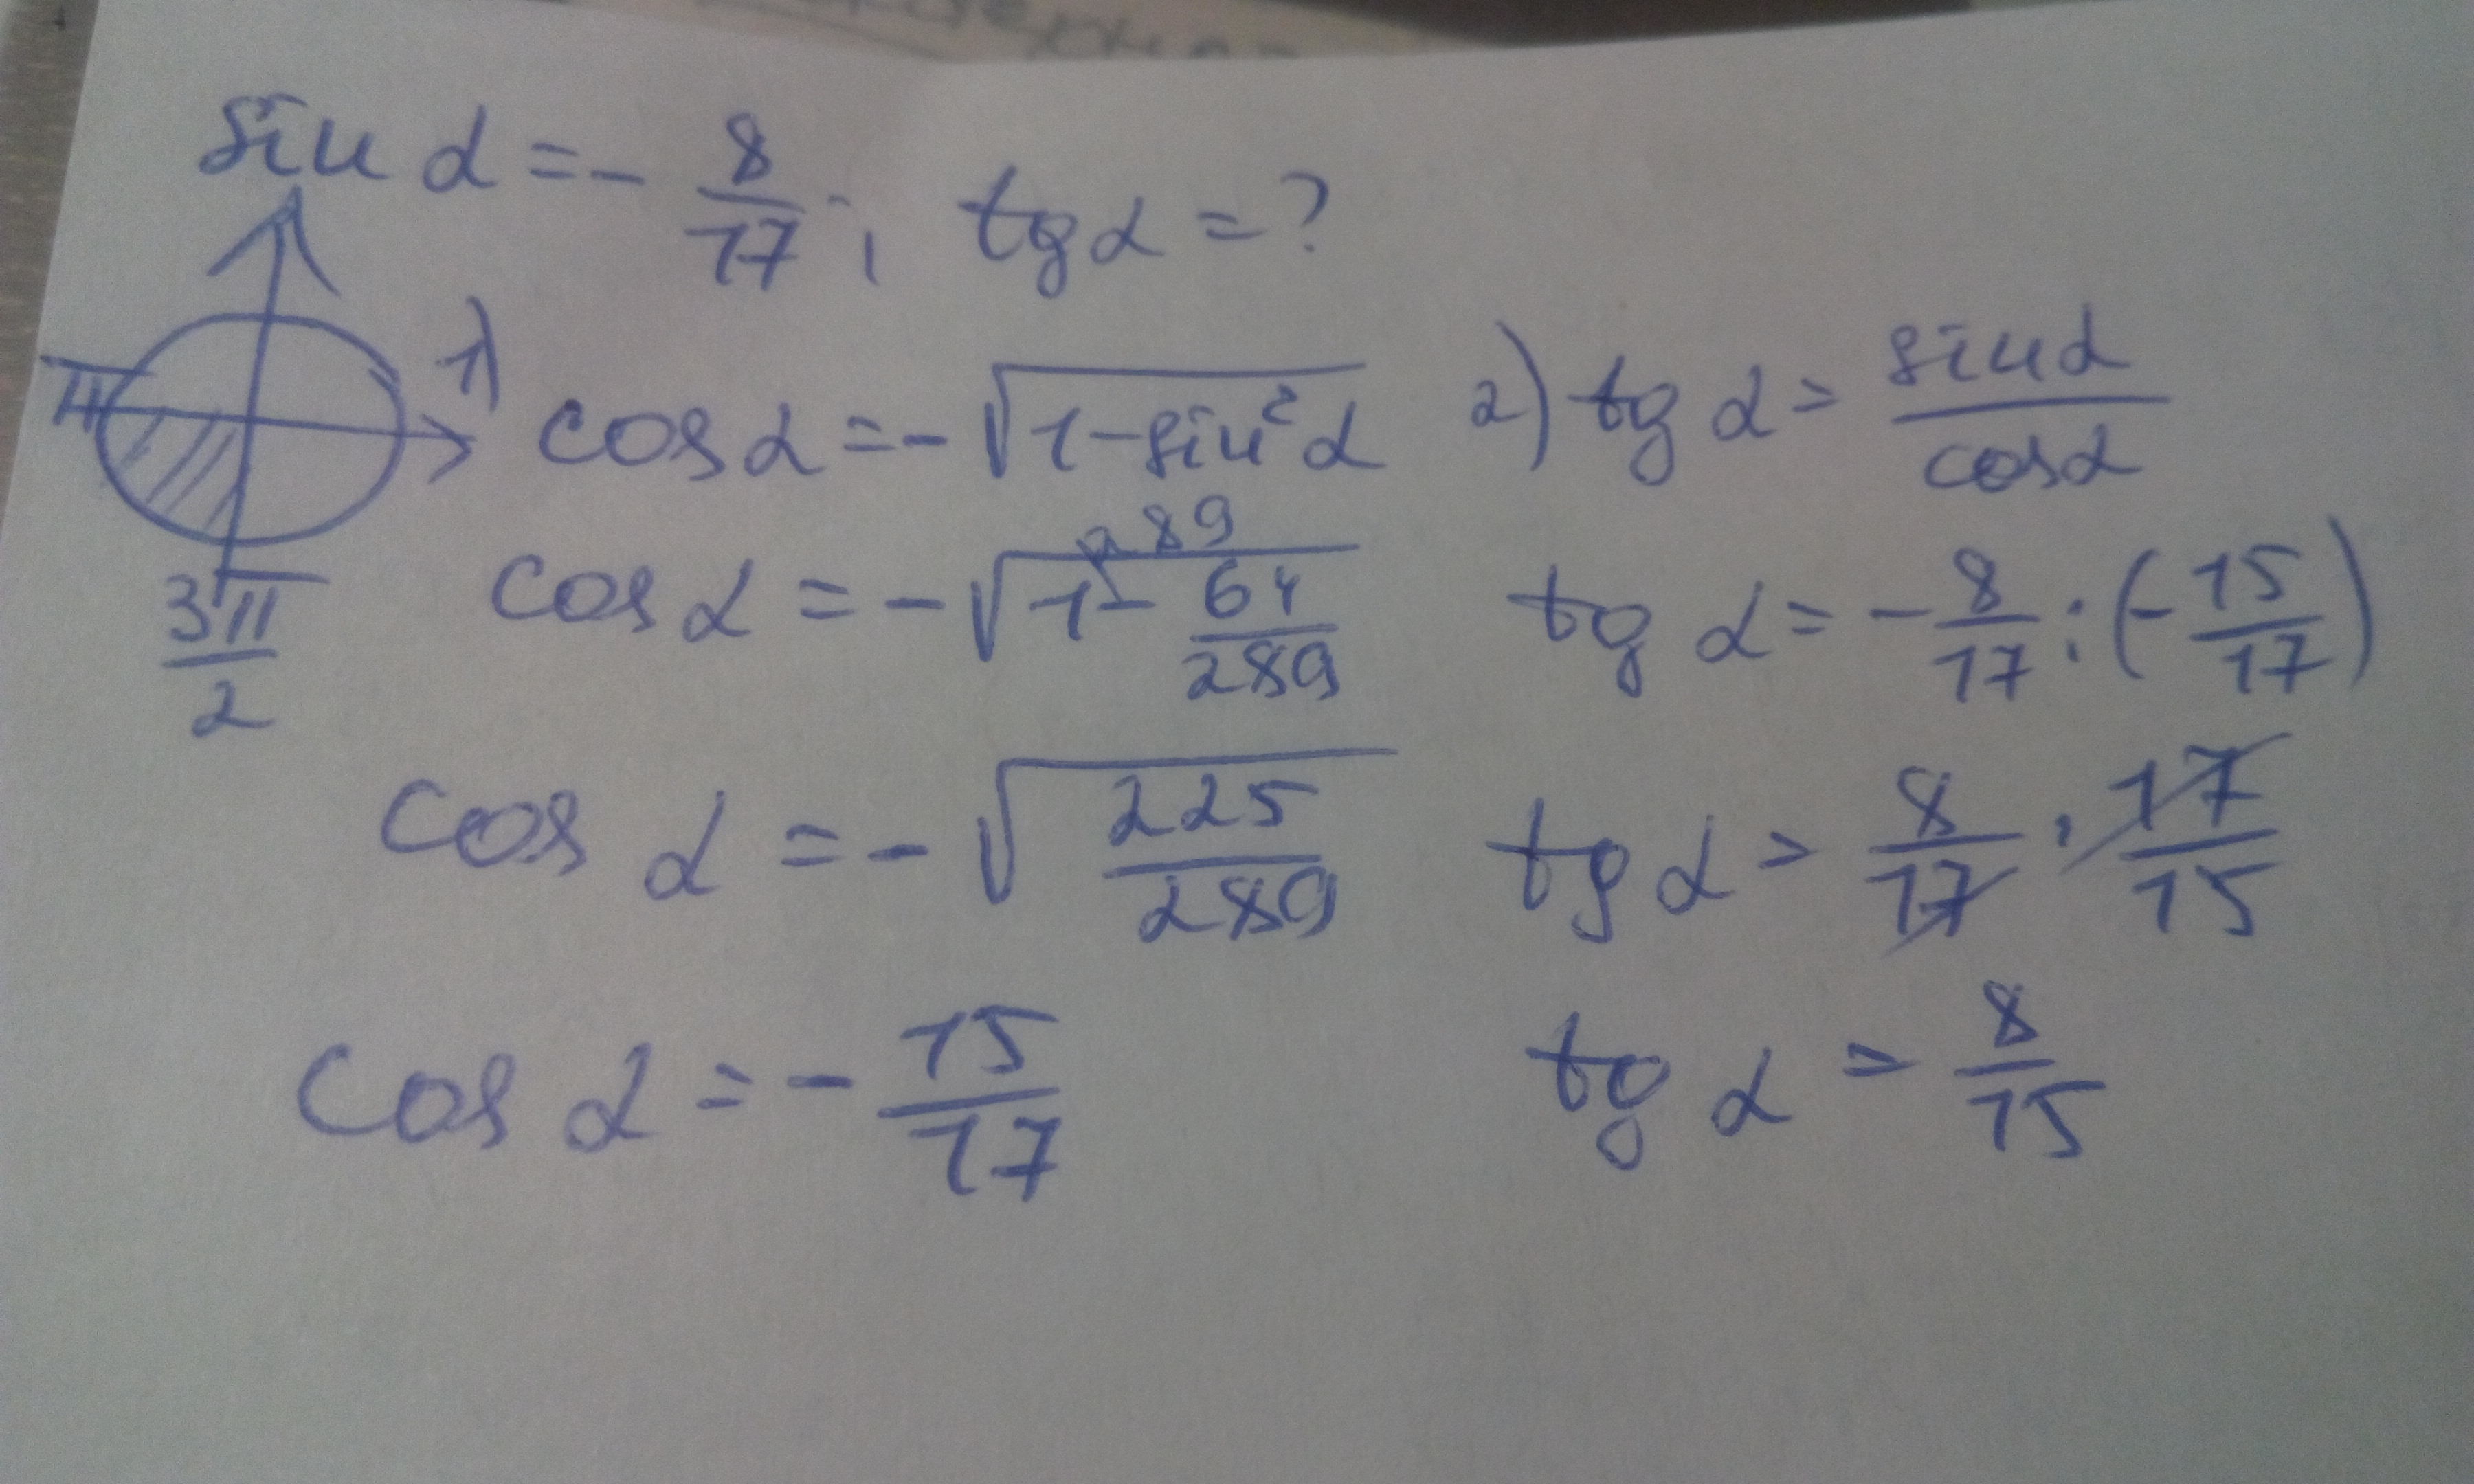 sin α = - 8/17; tg α = ?
π
3π/2
1) cos α = - √(1 - sin² α)
cos α = - √(1 - 64/289) 289
cos α = - √(225/289)
cos α = - 15/17
2) tg α = sin α / cos α
tg α = - 8/17 : (- 15/17)
tg α = 8/17 · 17/15
tg α = 8/15